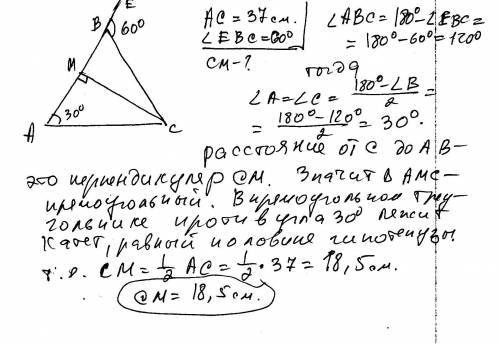 E
B 60°
M
A 30° C
AC = 37 см.
∠EBC = 60°
CM - ?
∠ABC = 180° - ∠EBC =
= 180° - 60° = 120°
тогда
∠A = ∠C = (180° - ∠B)/2 =
= (180° - 120°)/2 = 30°.
расстояние от C до AB -
это перпендикуляр CM. Значит △ AMC -
прямоугольный. В прямоугольном треу-
гольнике против угла 30° лежит
катет, равный половине гипотенузы
т.е. CM = 1/2 AC = 1/2 · 37 = 18,5 см.
CM = 18,5 см.